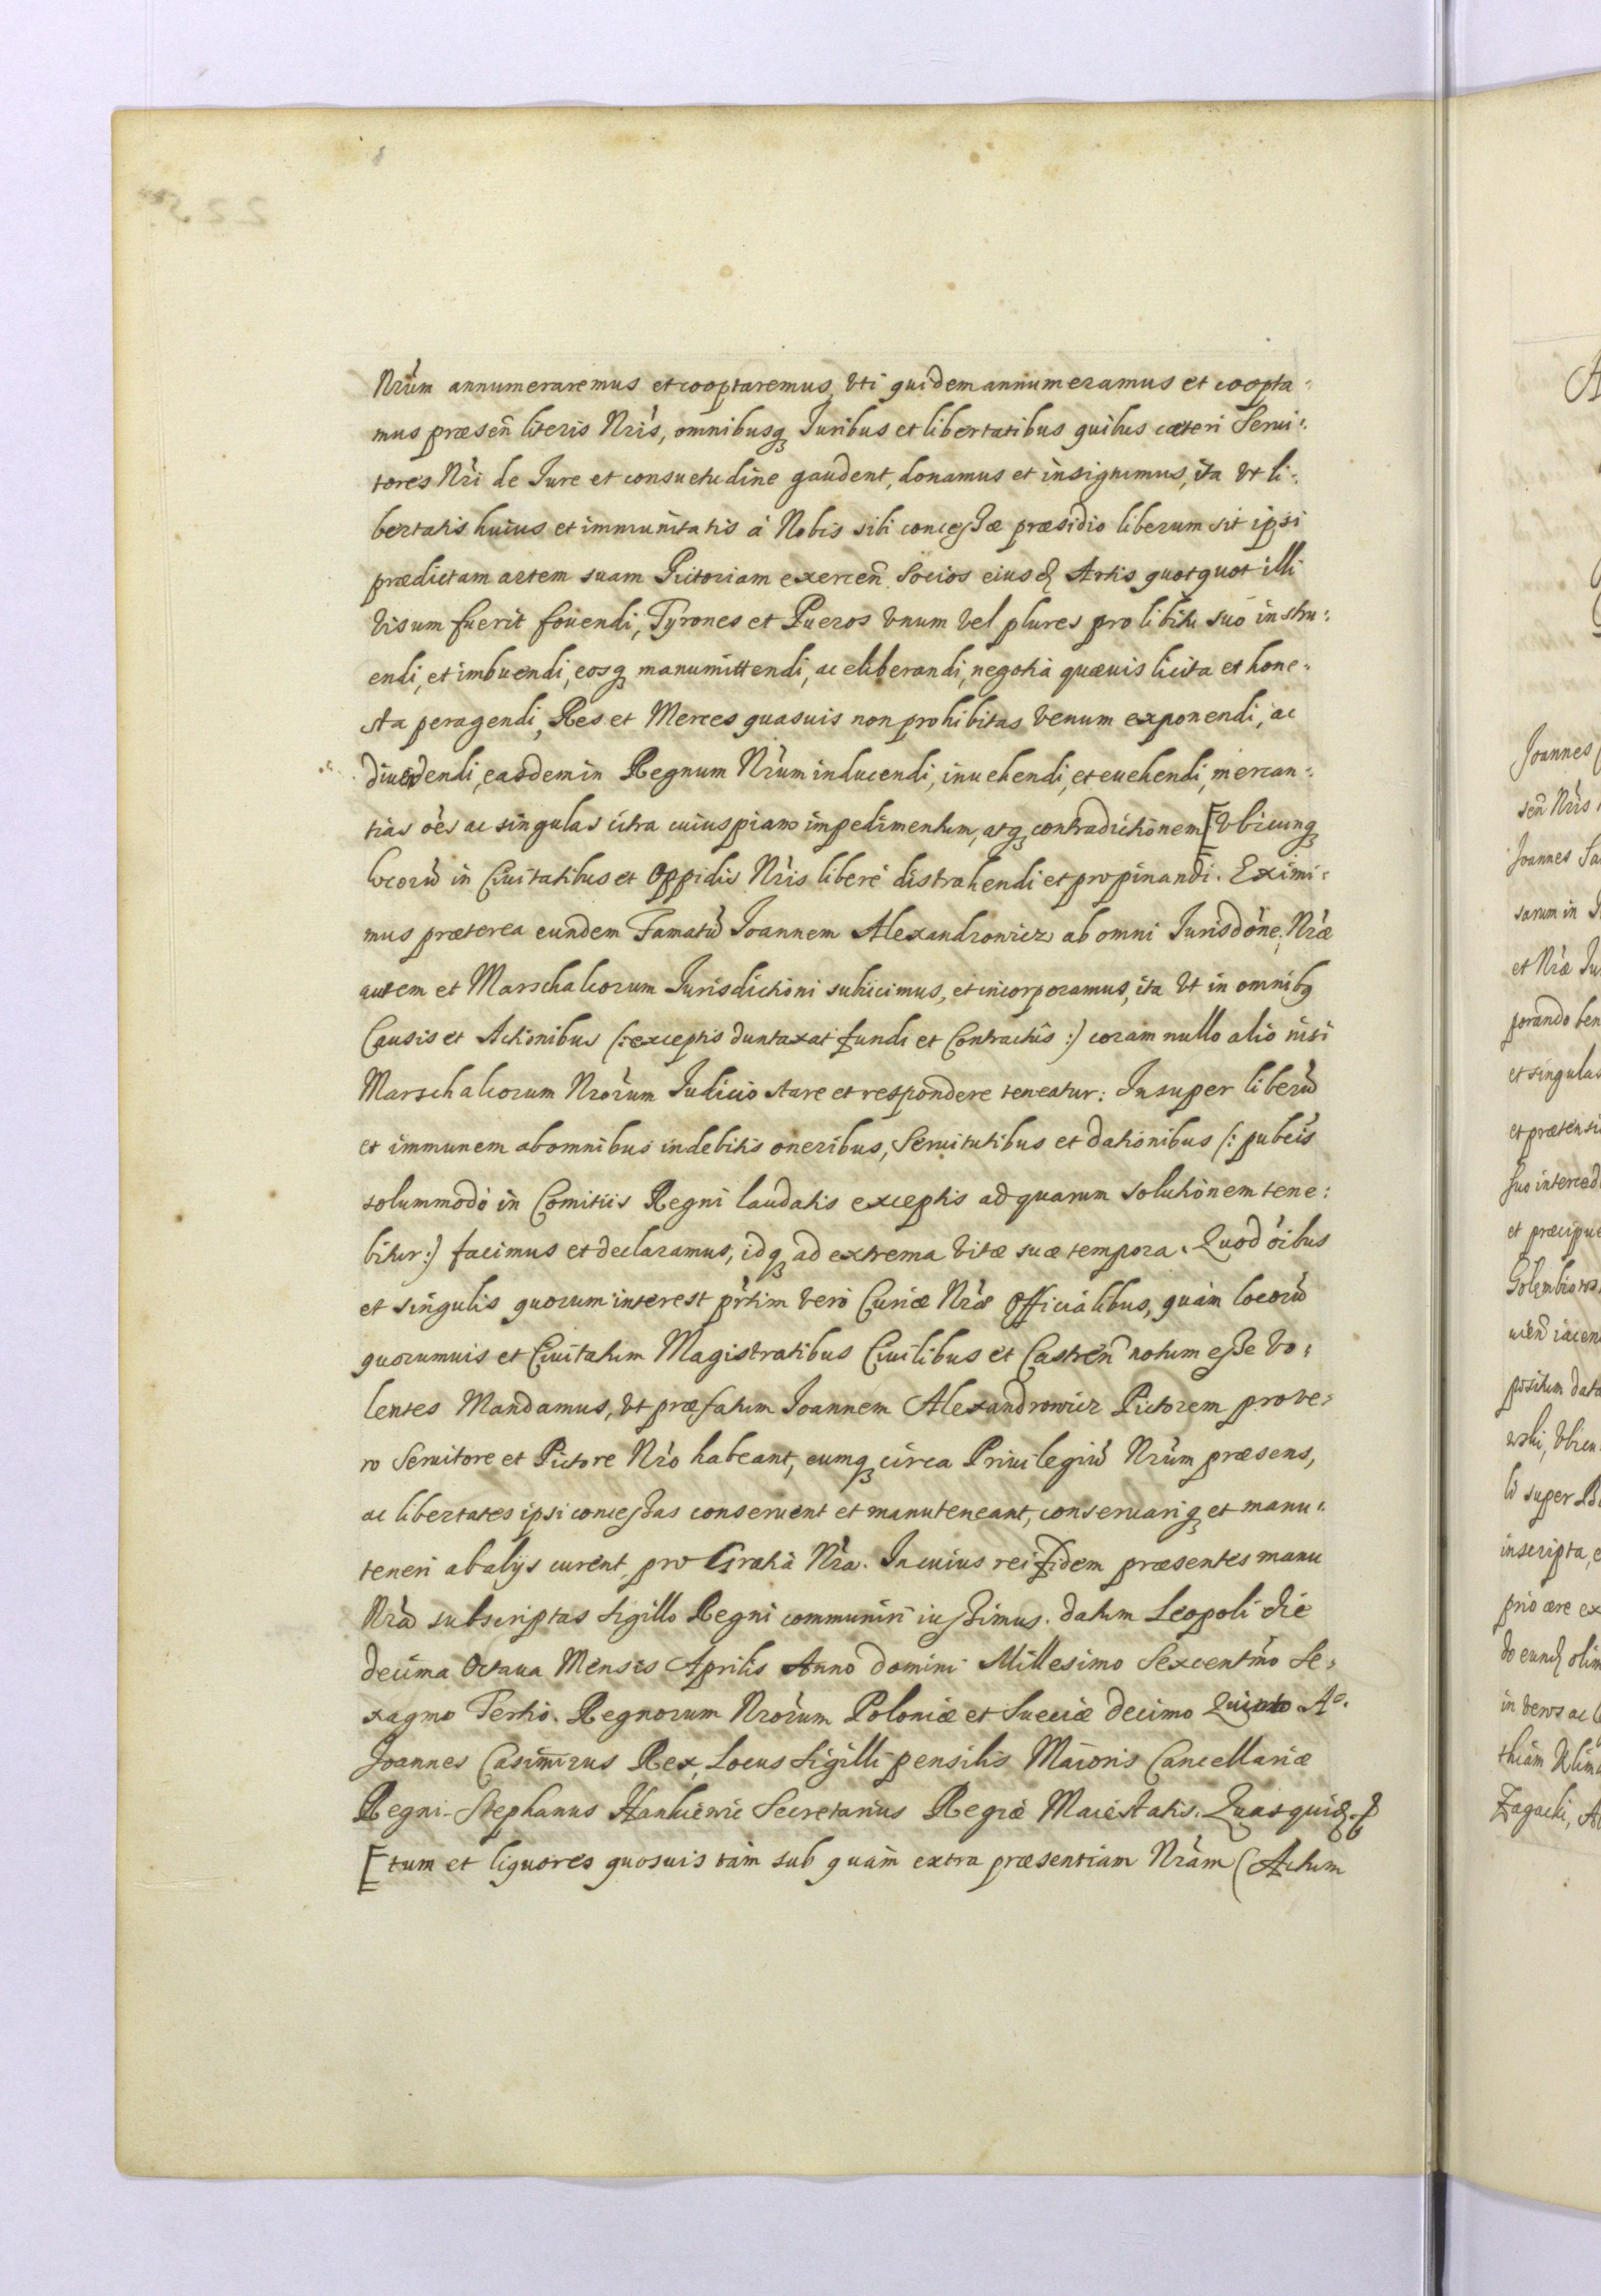 Nrum annumeraremus et cooptaremus, vti quidem annumeramus et coopta:
mus præsen literis Nris, omnibusq Iuribus et libertatibus quibus cæteri Serui:
tores Nri de Iure et consuetudine gaudent, donamus et insignimus, ita vt li:
bertatis huius et immunitatis à Nobis sibi concessæ præsidio liberum sit ipsi
prædictam artem suam Pictoriam exercen Socios eiusd Artis quotquot illi
visum fuerit fouendi, Tyrones et Pueros vnum vel plures pro libitu suo instru:
endi, et imbuendi, eosq manumittendi, ac eliberandi, negotia quæuis licita et hone:
sta peragendi, Res et Merces quasuis non prohibitas venum exponendi, ac
diuendendi, easdem in Regnum Nrum inducendi, inuehendi, et euehendi, mercan:
tias oes ac singulas citra cuiuspiam impedimentum, atq contradictionem [vbicunq
locorū in Ciuitatibus et Oppidis Nris liberè distrahendi et propinandi. Eximi:
mus præterea eundem Famatū Joannem Alexandrowicz ab omni Iurisdone; Nræ
autem et Marschalcorum Iurisdictioni subiicimus, et incorporamus, ita vt in omnibq
Causis et Actionibus (: exceptis duntaxat fundi et Contractûs :) coram nullo alio nisi
Marschalcorum Nrorum Iudicio stare et respondere teneatur: Insuper liberū
et immunem ab omnibus indebitis oneribus, Seruitutibus et dationibus (: pubcis
solummodò in Comitiis Regni laudatis exceptis ad quarum solutionem tene:
bitur :) facimus et declaramus, idq ad extrema vitæ suæ tempora. Quod oibus
et singulis quorum interest prtim verò Curiæ Nræ Officialibus, quàm locorū
quorumuis et Ciuitatum Magistratibus Ciuilibus et Castren notum esse vo:
lentes Mandamus, vt præfatum Joannem Alexandrowicz Pictorem pro ve:
ro Seruitore et Pictore Nro habeant, eumq circa Priuilegiū Nrum præsens,
ac libertates ipsi concessas conseruent et manuteneant, conseruariq et manu:
teneri ab alijs curent, pro Gratia Nra. In cuius rei fidem præsentes manu
Nra subscriptas sigillo Regni communiri iussimus. datum Leopoli die
decima Octaua Mensis Aprilis Anno domini Millesimo Sexcentmo Se:
xagmo Tertio. Regnorum Nrorum Poloniæ et Sueciæ decimo Quinto Ao.
Joannes Casimirus Rex, Locus sigilli pensilis Maioris Cancellariæ
Regni. Stephanus Hankiewic Secretarius Regiæ Maiestatis. Quasquid.
[tum et liquores quosuis tàm sub quàm extra præsentiam Nram (Actum
Joannes
sen Nris
Joannes Sa
sarum in
et Nræ Iu
porando ben
et singulas
et prætensi
suo interced
et præcipue
Golembiows
uien iacen
positum data
wski, vbicu
li super
inscripta, e
prio ære ex
do eund olim
in veros ac
thiam
Zagacki, A